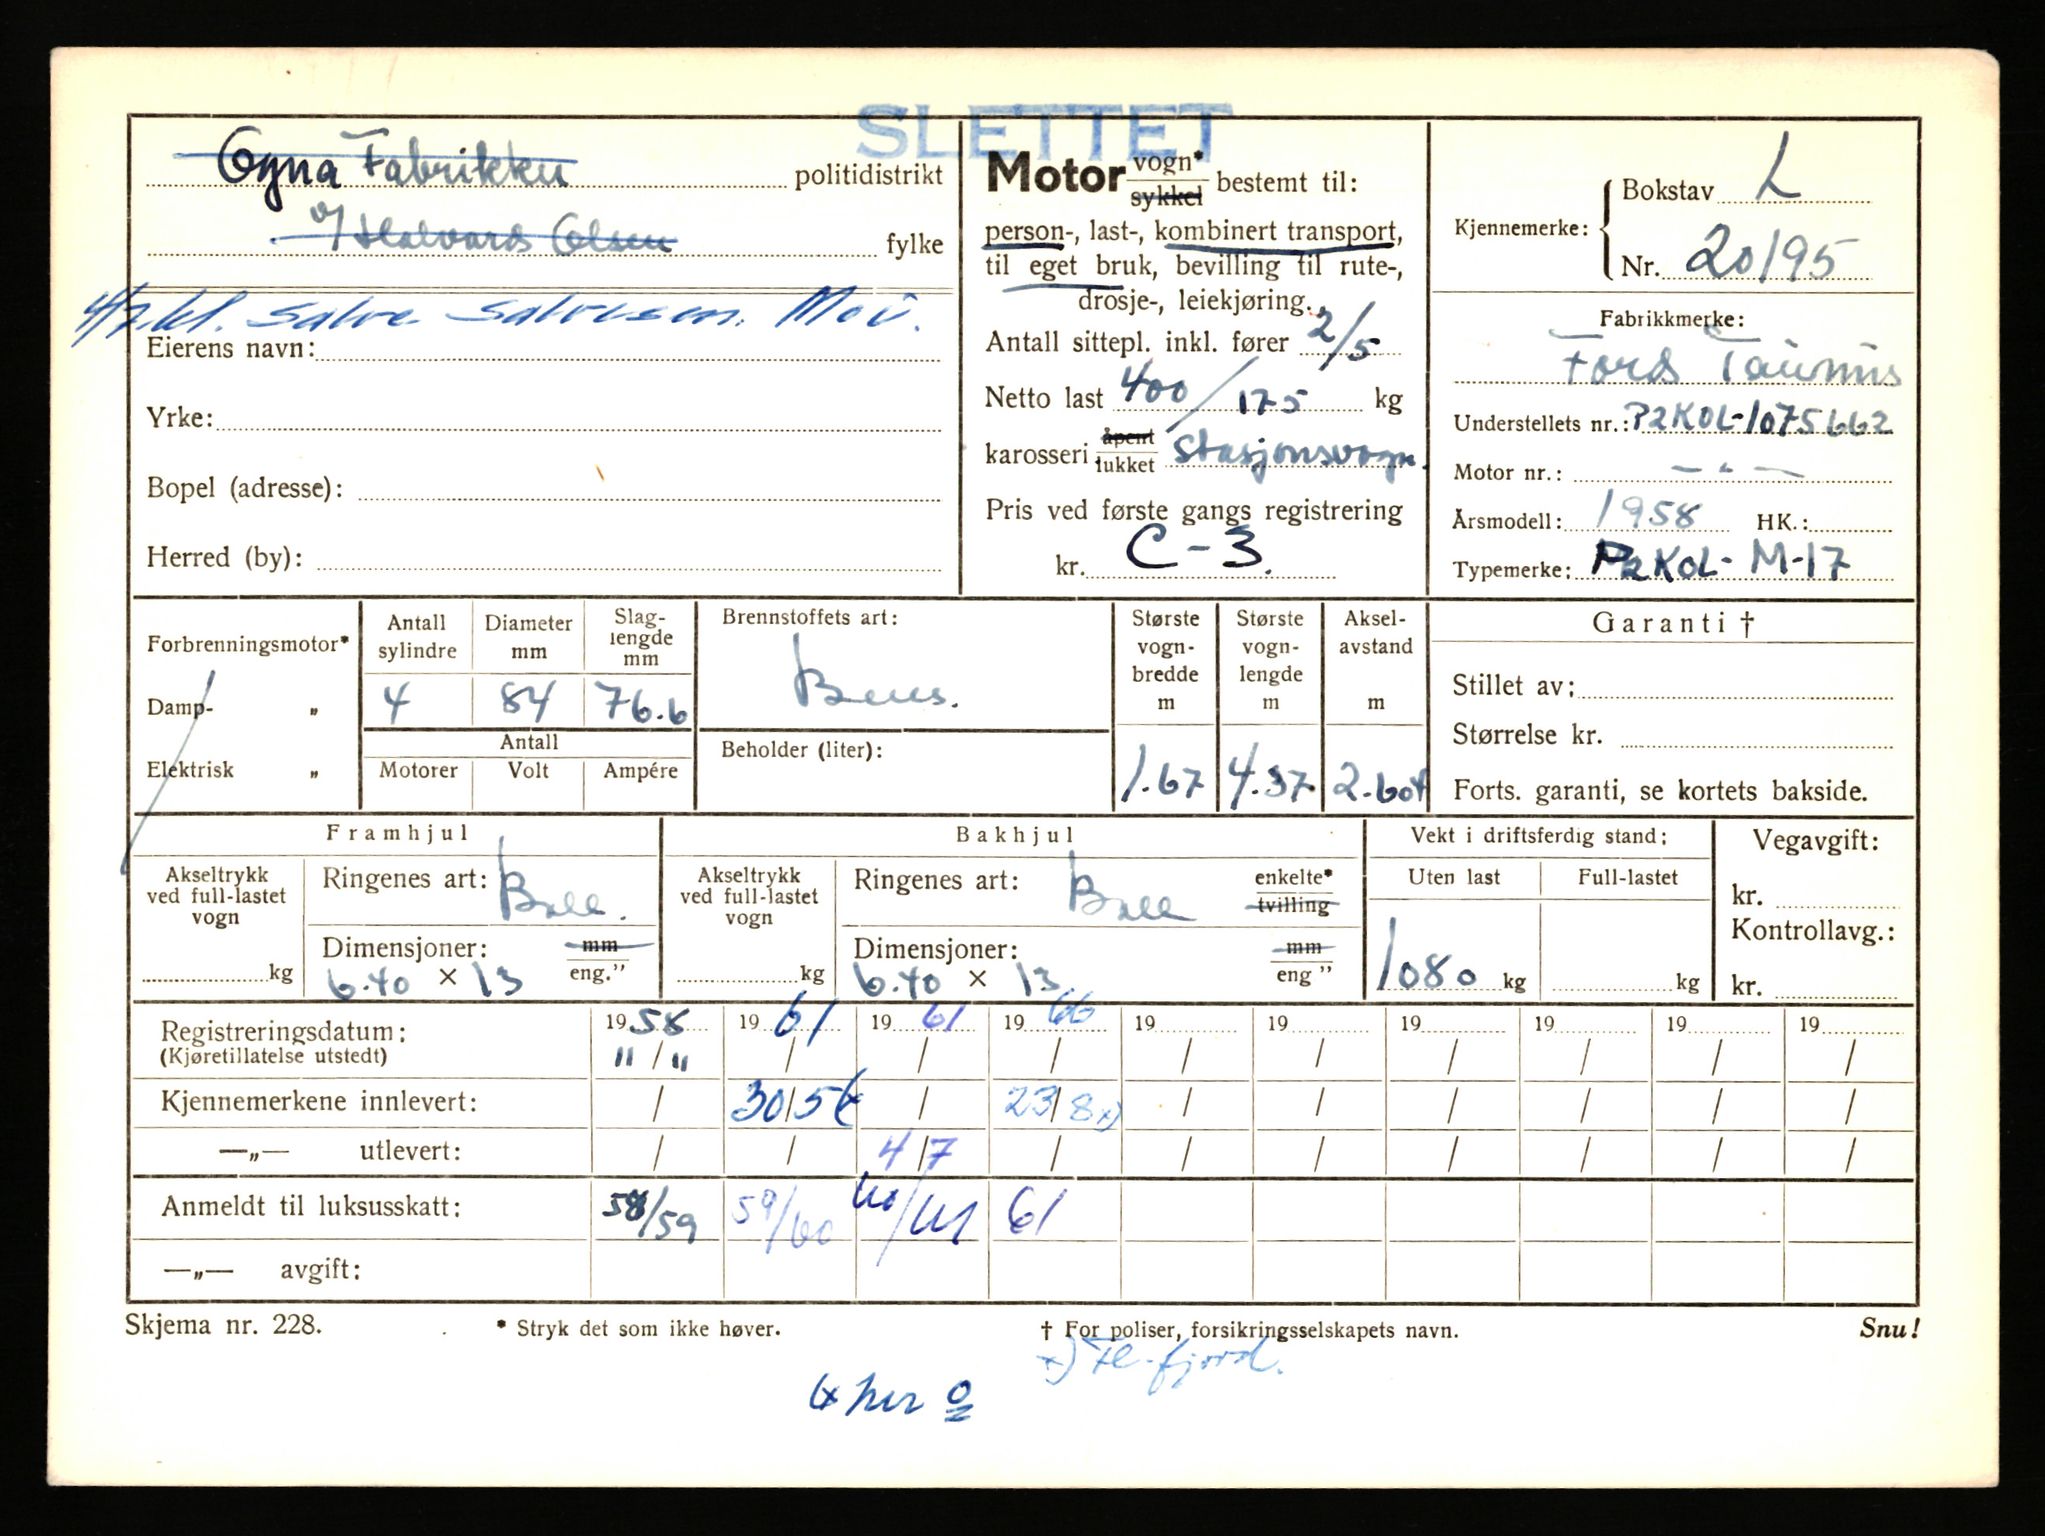 SLETTET
Ogna Fabrikker politidistrikt
v/ Halvard Olsen fylke
4/7.61. Salve Salvesen, Moi.
Eierens navn:
Yrke:
Bopel (adresse):
Herred (by):
Motor vogn* sykkel bestemt til:
person-, last-, kombinert transport,
til eget bruk, bevilling til rute-,
drosje-, leiekjøring.
Antall sittepl. inkl. fører 2/5
Netto last 400/175 kg
karosseri åpent lukket Stasjonsvogn.
Pris ved første gangs registrering
kr. C-3.
Kjennemerke: Bokstav L
Nr. 20195
Fabrikkmerke:
Ford Taunus
Understellets nr.: P2KOL-1075662
Motor nr.: — „ —
Årsmodell: 1958 HK.:
Typemerke: P2KOL- M-17
Forbrenningsmotor*
Damp- „
Elektrisk „
Antall sylindre Diameter mm Slag-lengde mm
4 84 76.6
Antall
Motorer Volt Ampére
Brennstoffets art:
Bens.
Beholder (liter):
Største vogn-bredde m Største vogn-lengde m Aksel-avstand m
1.67 4.37 2.604
Garanti †
Stillet av:
Størrelse kr.
Forts. garanti, se kortets bakside.
Framhjul
Akseltrykk ved full-lastet vogn
kg
Ringenes art: Ball.
Dimensjoner: mm eng."
6.40 × 13
Bakhjul
Akseltrykk ved full-lastet vogn
kg
Ringenes art: Ball enkelte* tvilling
Dimensjoner: mm eng "
6.40 × 13
Vekt i driftsferdig stand:
Uten last Full-lastet
1080 kg kg
Vegavgift:
kr.
Kontrollavg.:
kr.
Registreringsdatum: 1958 1961 1961 1966 19 19 19 19 19 19
(Kjøretillatelse utstedt) 11/11 / / / / / / / / /
Kjennemerkene innlevert: / 30/5 / 23/8 x) / / / / / /
—„— utlevert: / / 4/7 / / / / / / /
Anmeldt til luksusskatt: 58/59 59/60 60/61 61
—„— avgift:
Skjema nr. 228. * Stryk det som ikke høver. † For poliser, forsikringsselskapets navn. Snu!
x) Fl.-fjord.
her